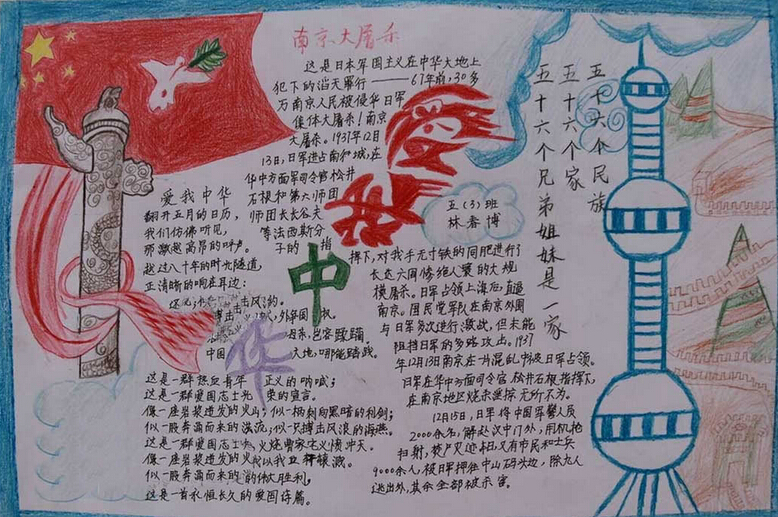 南京大屠杀
这是日本军国主义在中华大地上
犯下的滔天罪行——67年前,30多
万南京人民被侵华日军
集体大屠杀!南京
大屠杀。1937年12月
13日,日军进占南京城,在
华中方面军司令官松井
石根和第六师团
师团长长谷夫
等法西斯分
子的指
挥下,对我手无寸铁的同胞进行了
长达六周惨绝人寰的大规
模屠杀。日军占领上海后,直逼
南京。国民党军队在南京外围
与日军多次进行激战,但未能
阻挡日军的多路攻击。1937
年12月13日南京在一片混乱中被日军占领。
日军在华中方面司令官松井石根指挥下,
在南京地区烧杀淫掠无所不为。
12月15日,日军将中国军警人员
2000余名,解赴汉中门外,用机枪
扫射,焚尸灭迹。同日,又有市民和士兵
9000余人,被日军押往中山码头边,除九人
逃出外,其余全部被杀害。
爱我中华
翻开五月的日历,
我们仿佛听见,
那激越高昂的呼声。
越过八十年的时光隧道,
正清晰的响在耳边:
还我
搏击
中国
土地,哪能踏践。
这是一群热血青年正义的呐喊;
这是一群爱国志士光荣的宣言。
像一座岩浆迸发的火山;似一柄刺向黑暗的利剑;
似一股奔涌而来的洪流;似一只搏击风浪的海燕。
这是一群爱国志士
像一座岩浆迸发的火
似一股奔涌而来的伟大胜利,
这是一首永恒长久的爱国诗篇。
爱
我
中
华
五(3)班
林春博
五十六个民族
五十六个家
五十六个兄弟姐妹是一家